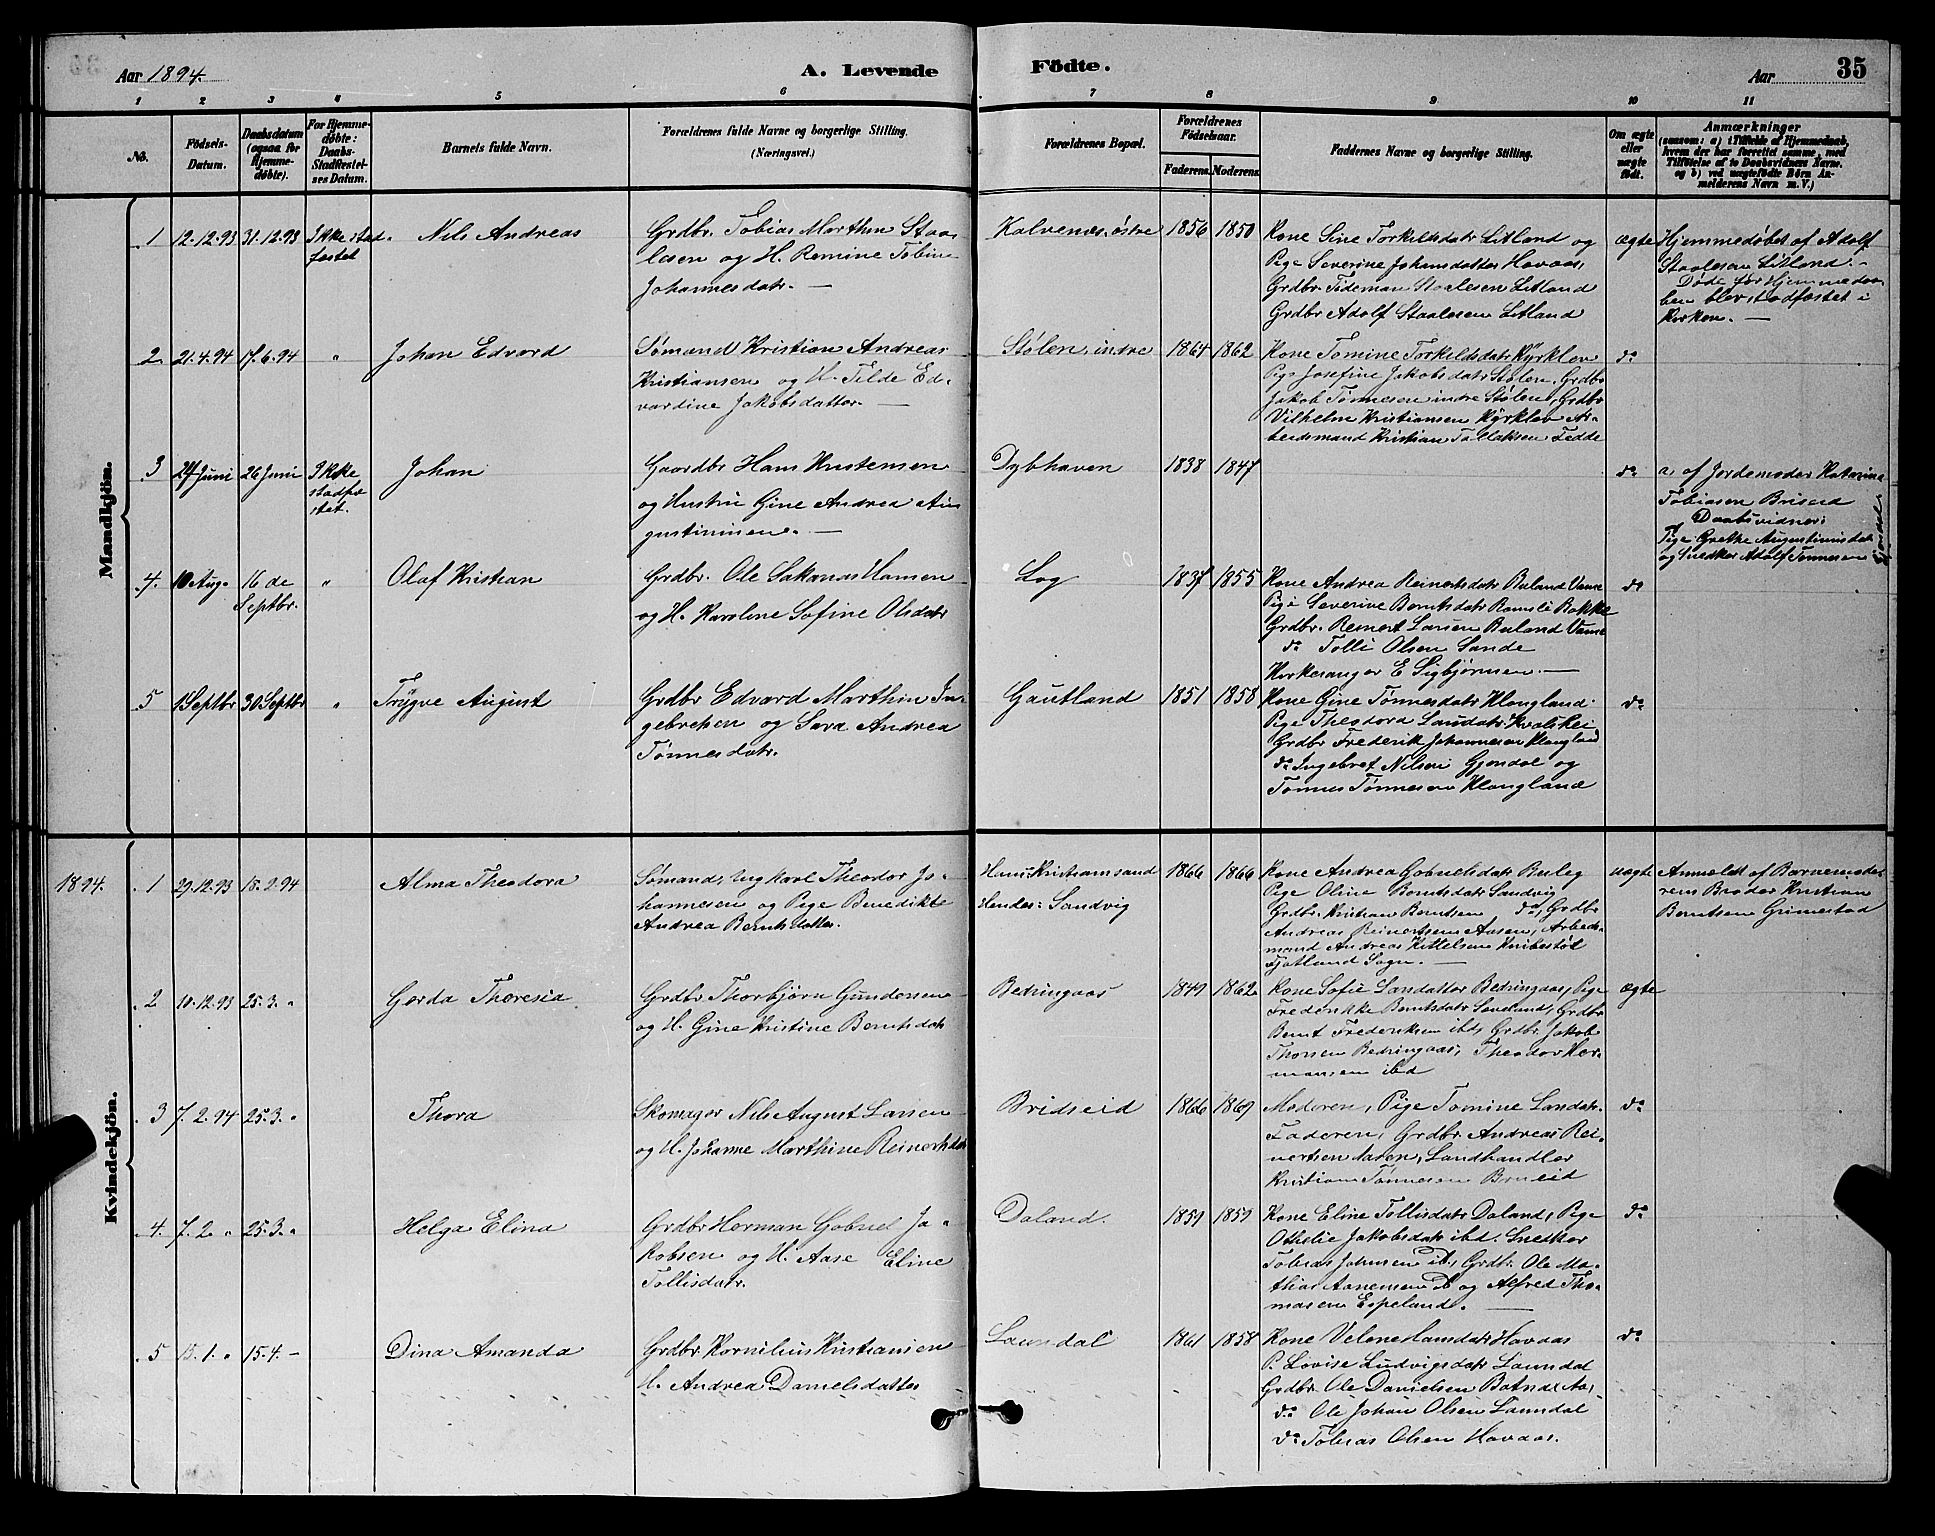 Aar 1894.
A. Levende Födte.
Aar
35
1 2 3 4 5 6 7 8 9 10 11
No.
Födsels-
Datum.
Daabsdatum
(ogsaa for
Hjemme-
døbte).
For Hjemme-
døbte:
Daabs-
Stadfæstel-
ses Datum.
Barnets fulde Navn.
Forældrenes fulde Navne og borgerlige Stilling.
(Næringsvei.)
Forældrenes Bopæl.
Forældrenes
Födselsaar.
Faderens. Moderens.
Faddernes Navne og borgerlige Stilling.
Om ægte
eller
uægte
født.
Anmærkninger
(saasom: a) i Tilfælde af Hjemmedaab,
hvem der har forrettet samme, med
Tilföielse af to Daabsvidners Navne,
og b) ved uægtefödte Börn An-
melderens Navn m. V.)
Mandkjön.
1 12.12.93 31.12.93 Ikke stad-
fæstet
Nils Andreas
Grdbr. Tobias Marthin Staa-
lesen og H. Remine Tobine
Johannesdatr. —
Kalvenes, östre 1856 1850
Kone Sine Torkildsdatr Litland og
Pige Severine Johansdatter Hovaas,
Grdbr Tideman Staalesen Litland
Grdbr Adolf Staalesen Litland
ægte
Hjemmedøbt af Adolf
Staalesen Litland. -
Døde før Hjemmedaa-
ben blev stadfæstet i
Kirken. —
2 21.4.94 17.6.94 "
Johan Edvard
Sømand Kristian Andreas
Kristiansen og H. Tilde Ed-
vardine Jakobsdatter. —
Stølen, indre 1864 1862
Kone Tomine Torkildsdatr Kyrklev
Pige Josefine Jakobsdatr Stølen, Grdbr
Jakob Tønnesen indre Stølen, Grdbr
Vilhelm Kristiansen Kyrklev Ar-
beidsmand Kristian Tallaksen Fedde
do
3 24 Juni 26 Juni Ikke
stadfæ-
stet.
Johan
Gaardbr Hans Kristensen
og Hustru Gine Andrea Au-
gustinusen. —
Dybhaven 1838 1847
do
a. af Jordemoder Katarina
Tobiasen Briseid
Daabsvidner:
Pige Grethe Augustinusdatr
og Snedker Adolf Tønnesen
4. 10 Aug. 16 de
Septbr. "
Olaf Kristian
Grdbr. Ole Sakarias Hansen
og H. Karoline Sofine Olsdatr
Log 1837 1855
Kone Andrea Reinertsdatr Buland Vanse
Pige Severine Berntsdatr Ramsli Bakke
Grdbr. Reinert Larsen Buland Vanse
do Tolli Olsen Sande
Kirkesanger E Sigbjørnsen. —
do
5 1 Septbr 30 Septbr "
Trygve August
Grdbr Edvard Marthin In-
gebretsen og Sara Andrea
Tønnesdatr.
Gautland 1851 1858
Kone Gine Tønnesdatr Klongland
Pige Theodora Larsdatr Kvalskei
Grdbr Frederik Johannesen Klongland
do Ingebret Nilsen Gjendal og
Tønnes Tønnesen Klongland
do
Kvindekjön.
1894. 1 29.12.93 18.2.94
Alma Theodora
Sømand, Ung karl Theodor Jo-
hannesen og Pige Benedikte
Andrea Berntsdatter.
Hans: Kristianssand
Hendes: Sandvig
1866 1866
Kone Andrea Gabrielsdatr Buleg
Pige Oline Berntsdatr Sandvig
Grdbr. Kristian Berntsen do, Grdbr
Andreas Reinertsen Aasen, Arbeids-
mand Andreas Kittelsen Knibestøl
Fjotland Sogn. —
uægte
Anmeldt af Barnemode-
rens Broder Kristian
Berntsen Grimestad
2 10.12.93 25.3. "
Gerda Theresia
Grdbr Thorbjørn Gundersen
og H. Gine Kristine Berntsdatr
Bedringaas 1849 1862
Kone Sofie Larsdatter Bedringaas, Pige
Frederikke Berntsdatr Søveland, Grdbr
Bernt Frederiksen ibd, Grdbr. Jakob
Thorsen Bedringaas, Theodor Her-
mansen ibd
ægte
3 7.2.94 25.3. "
Thora
Skomager Nils August Larsen
og H. Johanne Marthine Reinertsdatr
Bridseid 1866 1869
Moderen, Pige Tomine Larsdatr.
Faderen, Grdbr Andreas Rei-
nertsen Aasen, Landhandler
Kristian Tønnesen Briseid
do
4. 7.2 " 25.3. "
Helga Elina
Grdbr Herman Gabriel Ja-
kobsen og H. Aase Eline
Tollisdatr.
Daland. 1859 1859
Kone Eline Tollisdatr Daland, Pige
Othelie Jakobsdatr ibd. Snedker
Tobias Johnsen ib, Grdbr. Ole Ma-
thias Aanensen ib og Alfred Tho-
masen Espeland. —
do
5 15.1. " 15.4. -
Dina Amanda
Grdbr Kornilius Kristiansen
H. Andrea Danielsdatter
Laundal 1861 1858
Kone Velene Hansdatr Hovaas
P. Lovise Ludvigsdatr Laundal
Grdbr. Ole Danielsen
do Ole Johan Olsen Laundal
do Tobias Olsen Hovaas.
do